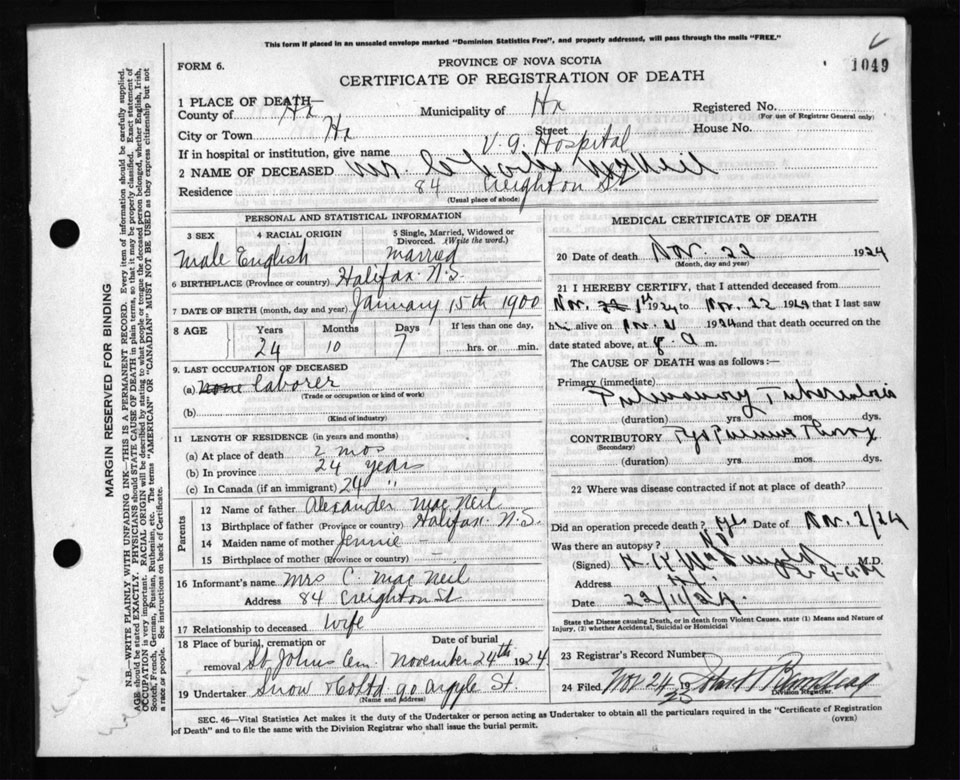 This form if placed in an unsealed envelope marked "Dominion Statistics Free", and properly addressed, will pass through the mails "FREE."
FORM 6.
PROVINCE OF NOVA SCOTIA
1049
CERTIFICATE OF REGISTRATION OF DEATH
1 PLACE OF DEATH—
County of Hx Municipality of Hx Registered No.
(For use of Registrar General only)
City or Town Hx Street House No.
If in hospital or institution, give name V. G. Hospital
2 NAME OF DECEASED Mr. McNeil
Residence 84 Creighton St
(Usual place of abode)
PERSONAL AND STATISTICAL INFORMATION
3 SEX 4 RACIAL ORIGIN 5 Single, Married, Widowed or Divorced. (Write the word.)
Male English Married
6 BIRTHPLACE (Province or country) Halifax N.S.
7 DATE OF BIRTH (month, day and year) January 15th 1900
8 AGE Years Months Days If less than one day,
24 10 7 hrs. or min.
9. LAST OCCUPATION OF DECEASED
(a) None laborer
(Trade or occupation or kind of work)
(b)
(Kind of industry)
11 LENGTH OF RESIDENCE (in years and months)
(a) At place of death 2 mos
(b) In province 24 years
(c) In Canada (if an immigrant) 24 "
Parents
12 Name of father Alexander Mac Neil
13 Birthplace of father (Province or country) Halifax N.S.
14 Maiden name of mother Jennie –
15 Birthplace of mother (Province or country) –
16 Informant's name Mrs C. Mac Neil
Address 84 Creighton St
17 Relationship to deceased Wife
18 Place of burial, cremation or removal St Johns Cem. Date of burial November 24th 1924
19 Undertaker Snow & Co Ltd 90 Argyle St.
(Name and address)
MEDICAL CERTIFICATE OF DEATH
20 Date of death Nov. 22 1924
(Month, day and year)
21 I HEREBY CERTIFY, that I attended deceased from
Nov. 1st 1924 to Nov. 22 1924 that I last saw
him alive on Nov. 21 1924 and that death occurred on
date stated above, at 8. a m.
The CAUSE OF DEATH was as follows:—
Primary (immediate)
Pulmonary Tuberculosis
(duration) yrs. mos. dys.
CONTRIBUTORY Pyopneumothorax
(Secondary)
(duration) yrs. mos. dys.
22 Where was disease contracted if not at place of death?
Did an operation precede death? Yes Date of Nov. 2/24
Was there an autopsy? No
(Signed) M.D.
Address
Date 22/11/24.
State the Disease causing Death, or in death from Violent Causes, state (1) Means and Nature of Injury, (2) whether Accidental, Suicidal or Homicidal
23 Registrar's Record Number
24 Filed Nov 24 19
25
Division Registrar.
SEC. 46—Vital Statistics Act makes it the duty of the Undertaker or person acting as Undertaker to obtain all the particulars required in the "Certificate of Registration of Death" and to file the same with the Division Registrar who shall issue the burial permit.
(OVER)
MARGIN RESERVED FOR BINDING
N.B.—WRITE PLAINLY WITH UNFADING INK—THIS IS A PERMANENT RECORD. Every item of information should be carefully supplied.
AGE should be stated EXACTLY. PHYSICIANS should STATE CAUSE OF DEATH in plain terms, so that it may be properly classified. Exact statement of
OCCUPATION is very important. RACIAL ORIGIN will be described by stating to what people or tongue the deceased person belonged, whether English, Irish,
Scotch, French, German, Russian, Ruthenian, etc. The terms "AMERICAN" or "CANADIAN" MUST NOT BE USED as they express citizenship but not
a race or people. See instructions on back of Certificate.